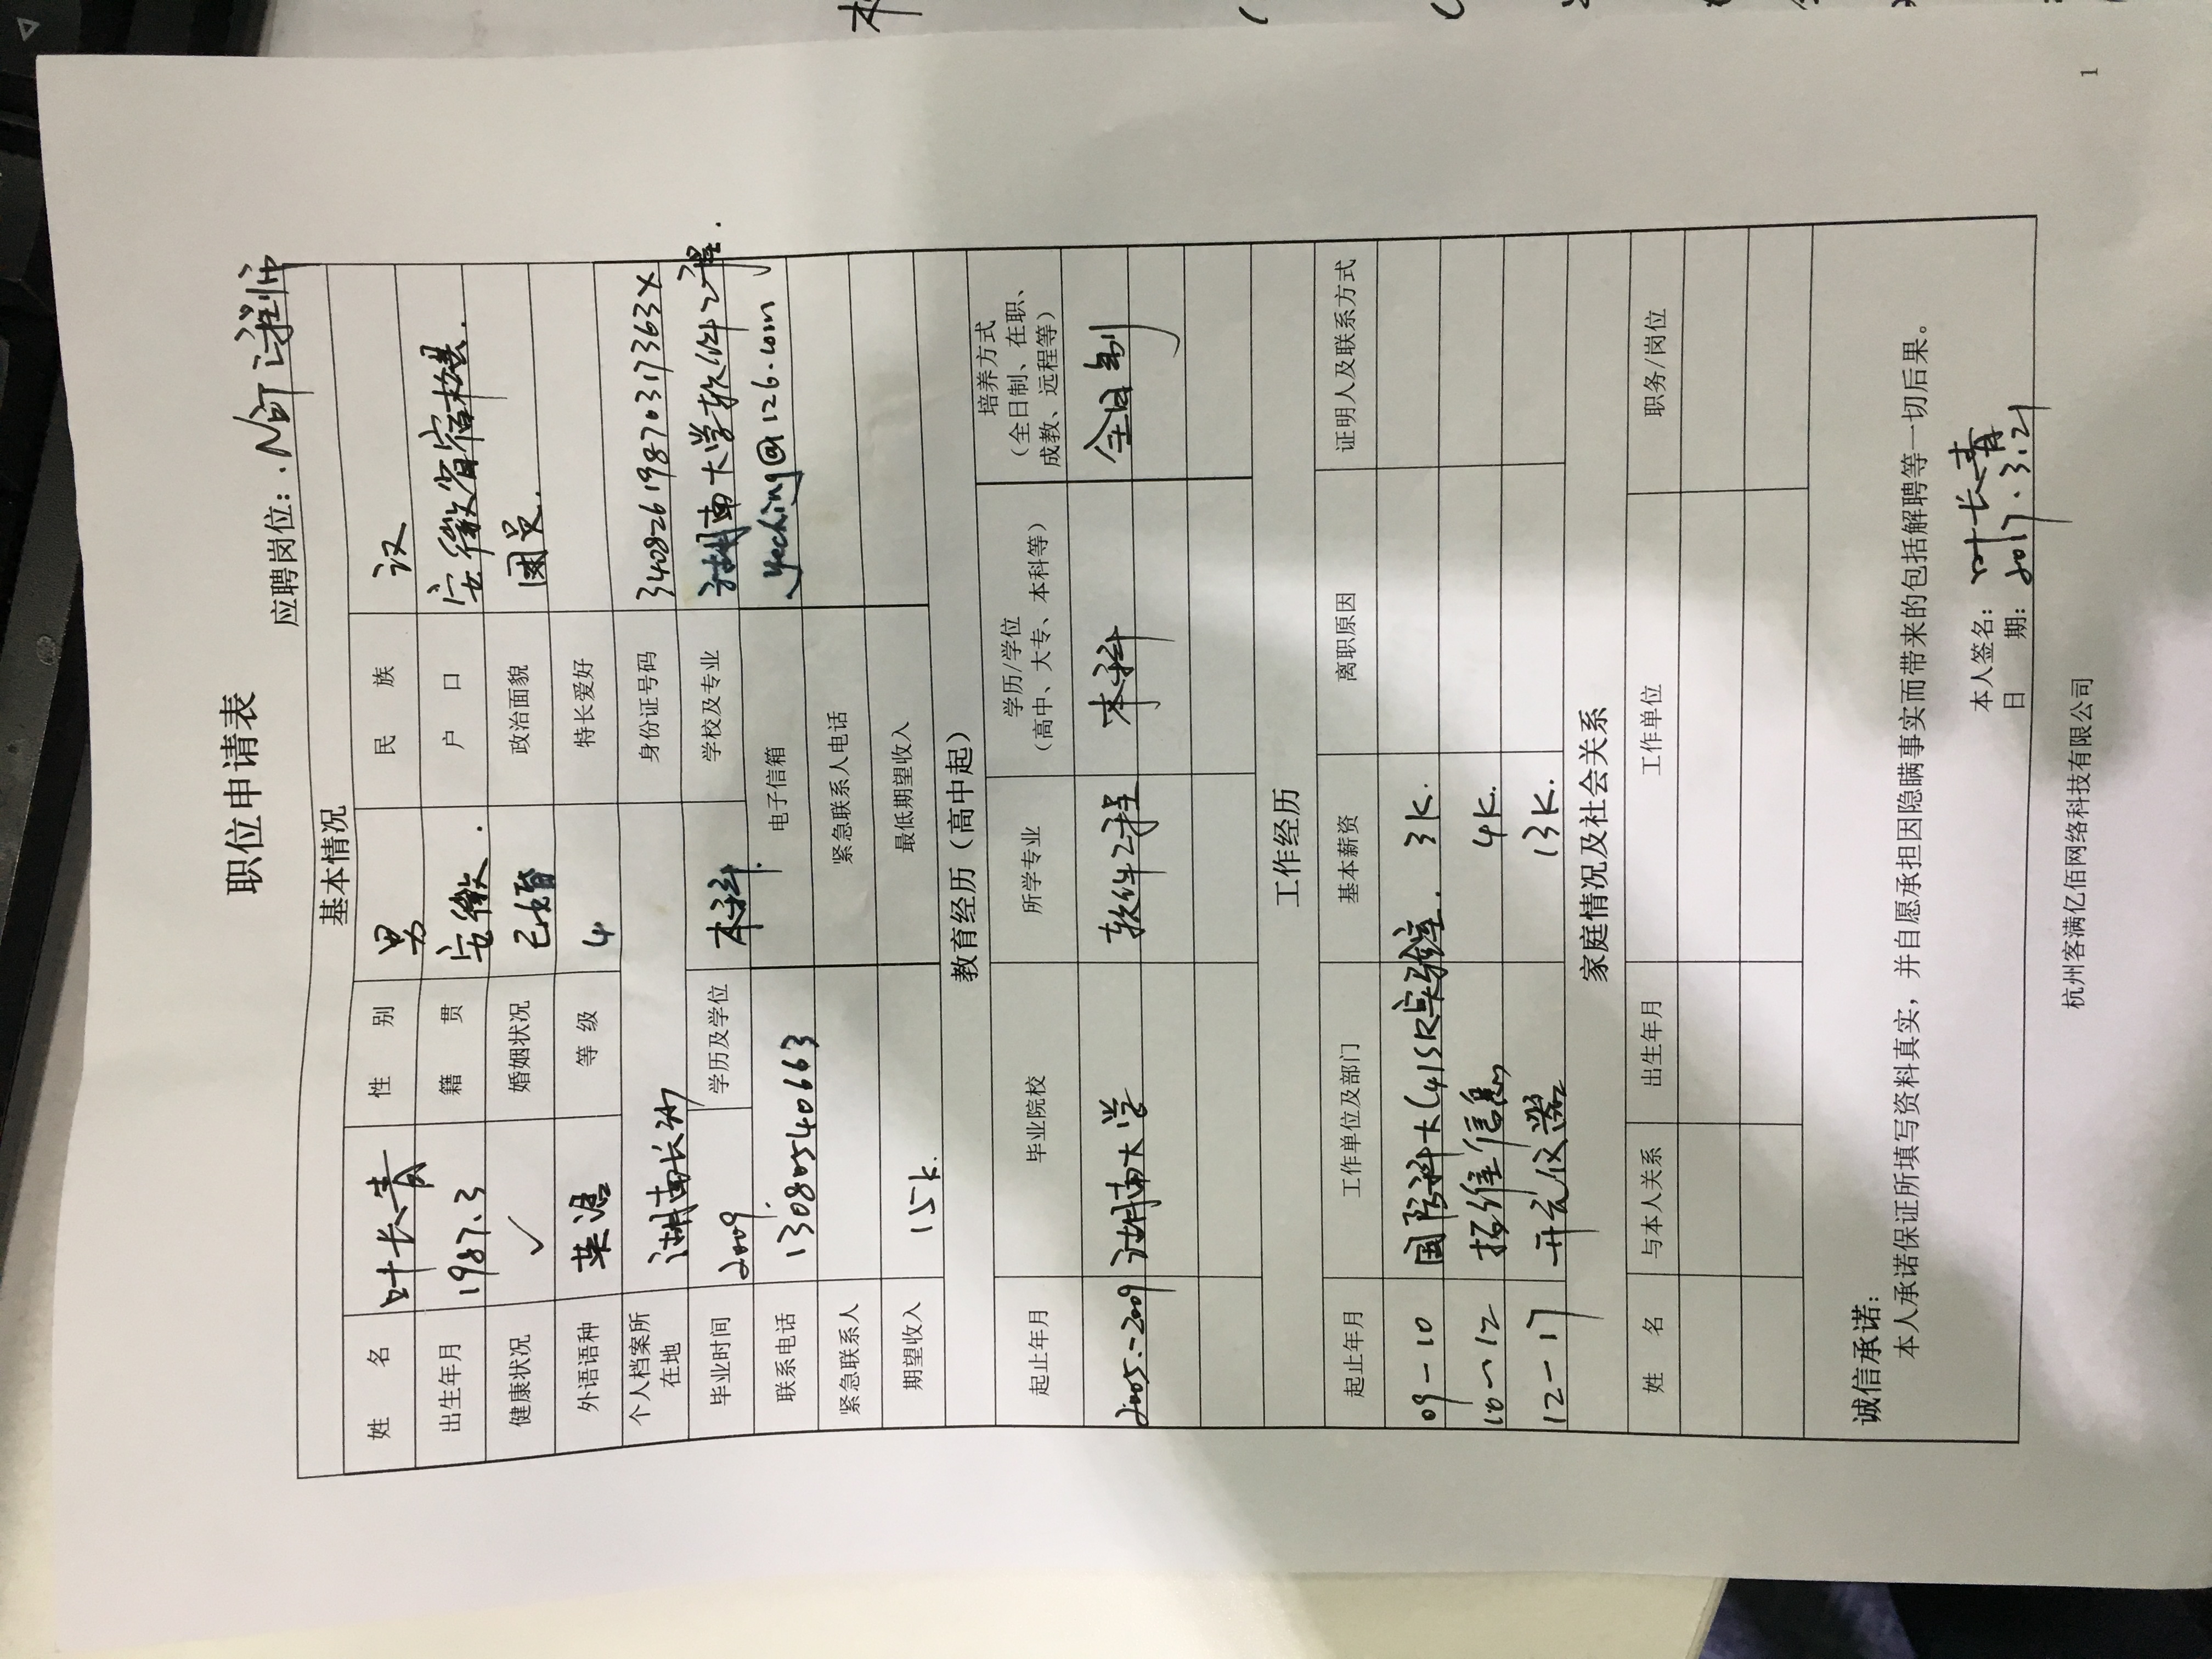 职位申请表
应聘岗位：.NET工程师
基本情况
姓 名 叶长青 性 别 男 民 族 汉
出生年月 1987.3 籍 贯 安徽. 户 口 安徽省宿松县.
健康状况 ✓ 婚姻状况 已婚 政治面貌 团员.
外语语种 英语 等 级 4 特长爱好
个人档案所
在地 湖南长沙 身份证号码 34082619870317363X
毕业时间 2009. 学历及学位 本科. 学校及专业 湖南大学软件工程.
联系电话 13080540663 电子信箱 yeching@126.com
紧急联系人 紧急联系人电话
期望收入 15k. 最低期望收入
教育经历（高中起）
起止年月 毕业院校 所学专业 学历/学位
（高中、大专、本科等） 培养方式
（全日制、在职、
成教、远程等）
2005.-2009 湖南大学 软件工程 本科 全日制
工作经历
起止年月 工作单位及部门 基本薪资 离职原因 证明人及联系方式
09-10 国防科大C4ISR实验室. 3K.
10-12 拓维信息 4K.
12-17 开元仪器 13K.
家庭情况及社会关系
姓 名 与本人关系 出生年月 工作单位 职务/岗位
诚信承诺：
本人承诺保证所填写资料真实，并自愿承担因隐瞒事实而带来的包括解聘等一切后果。
本人签名： 叶长青
日 期： 2017.3.21
杭州客满亿佰网络科技有限公司
1